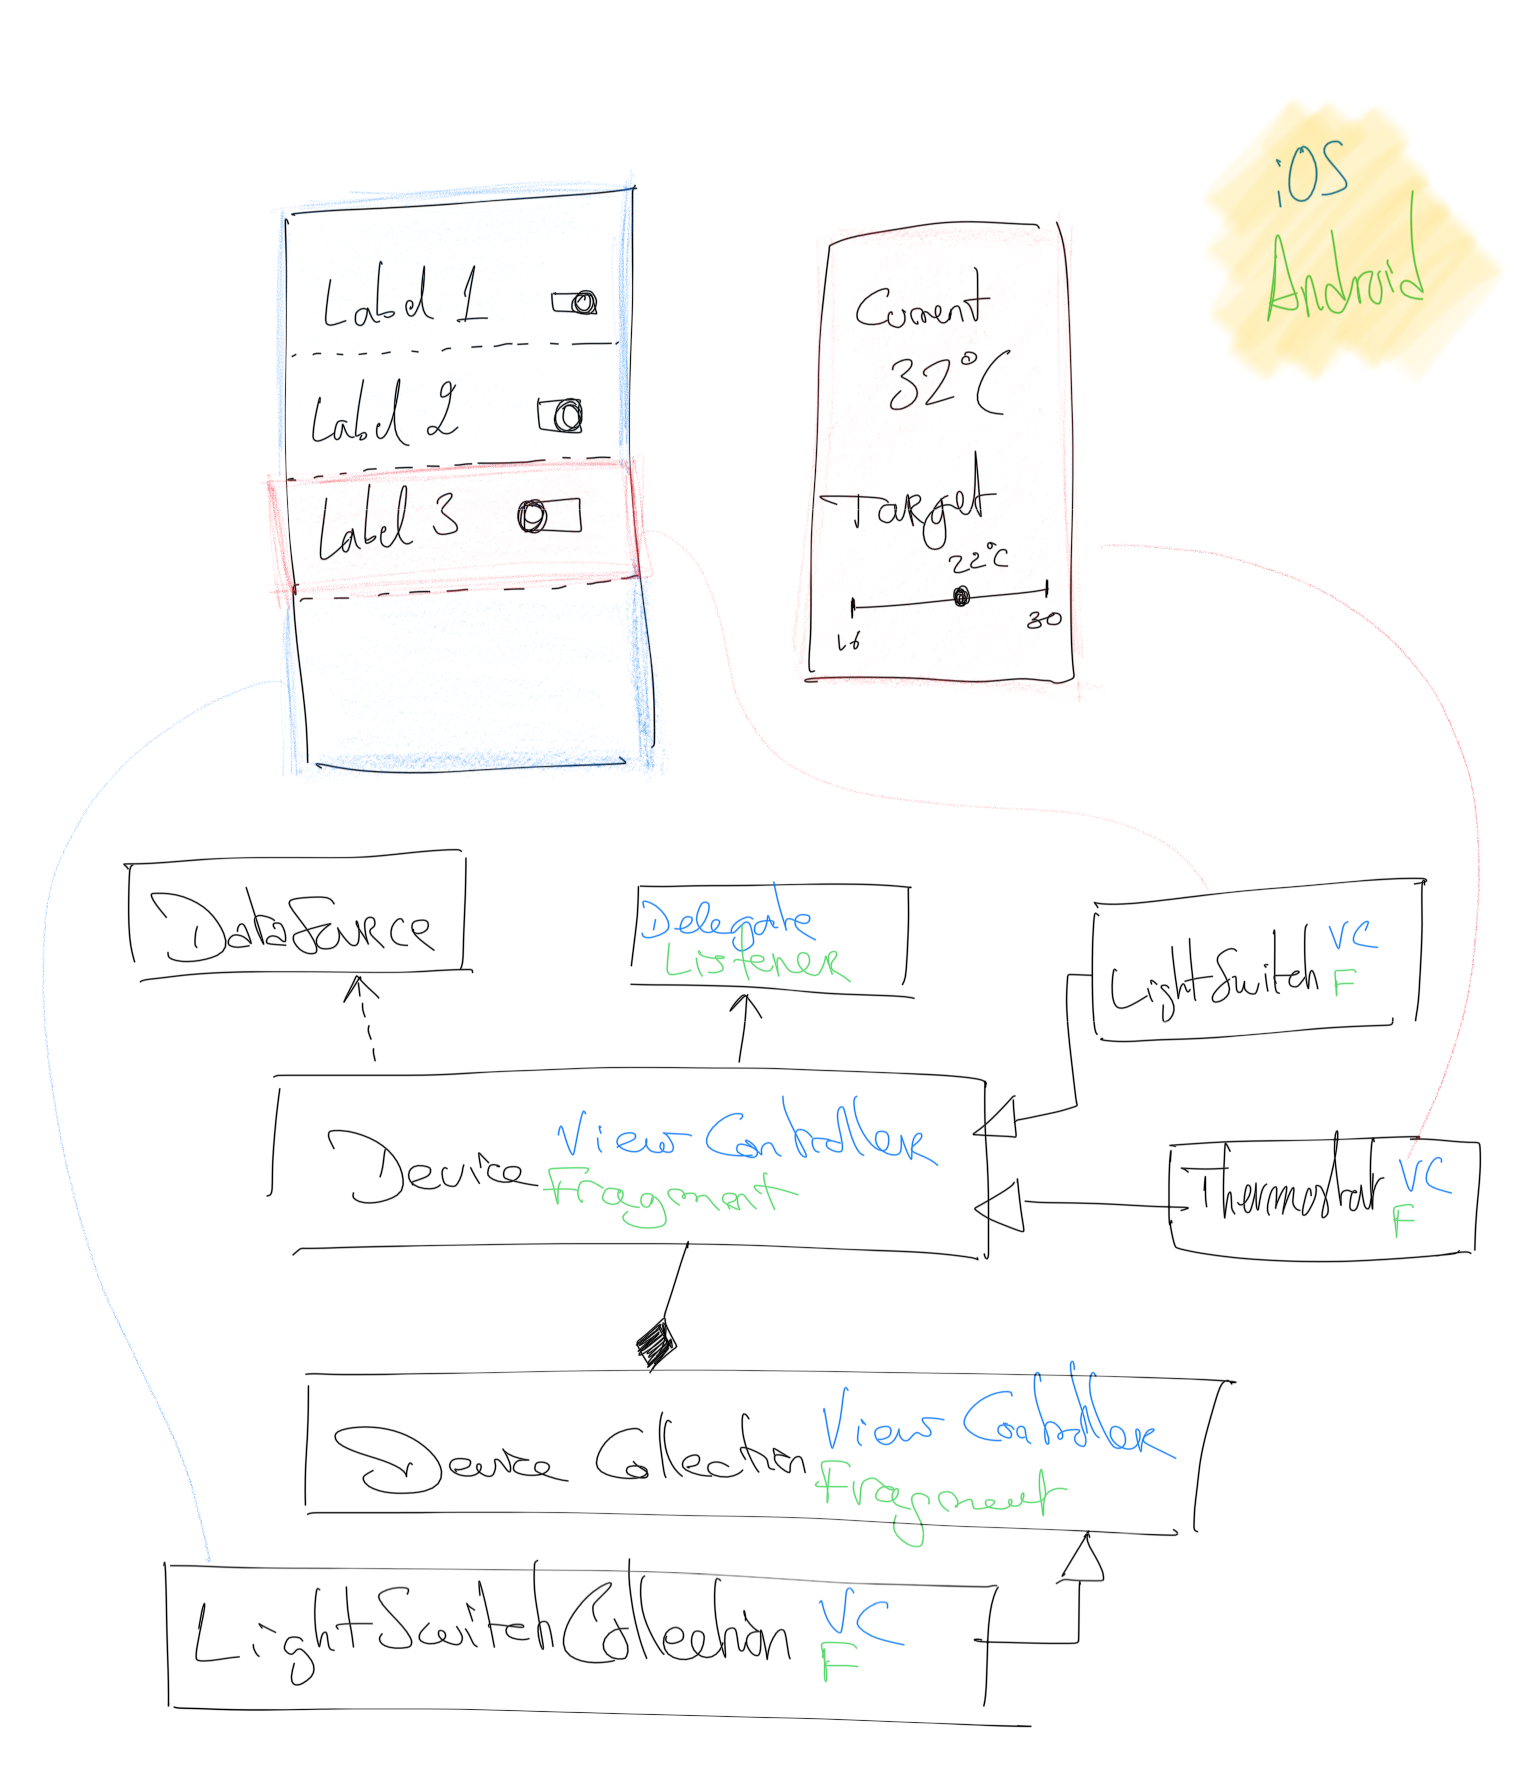 iOS
Android
Label 1
Label 2
Label 3
Current
32°C
Target
22°C
16
30
DataSource
Delegate
Listener
LightSwitch VC
F
Device View Controller
Fragment
Thermostat VC
F
Device Collection View Controller
Fragment
LightSwitchCollection VC
F